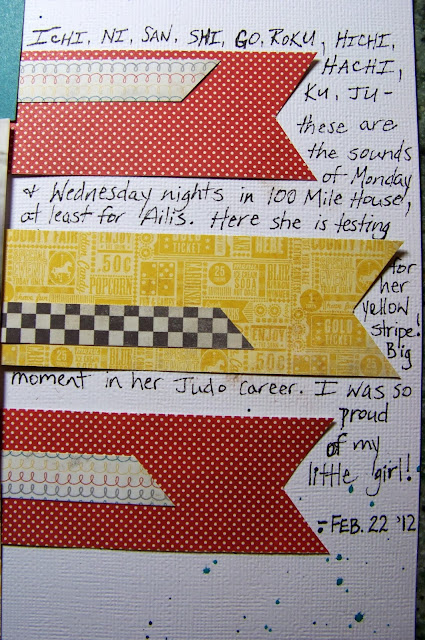 ICHI, NI, SAN, SHI, GO, ROKU, HICHI,
HACHI,
KU, JU-
these are
the sounds
of Monday
& Wednesday nights in 100 Mile House,
at least for Aili's. Here she is testing
COUNTY FAIR
ENJOY
.50¢
POPCORN
GOLD
TICKET
SODA
25
ENJOY
GOLD
TICKET
for
her
yellow
stripe!
Big
moment in her Judo career. I was so
proud
of my
little girl!
-FEB. 22 '12